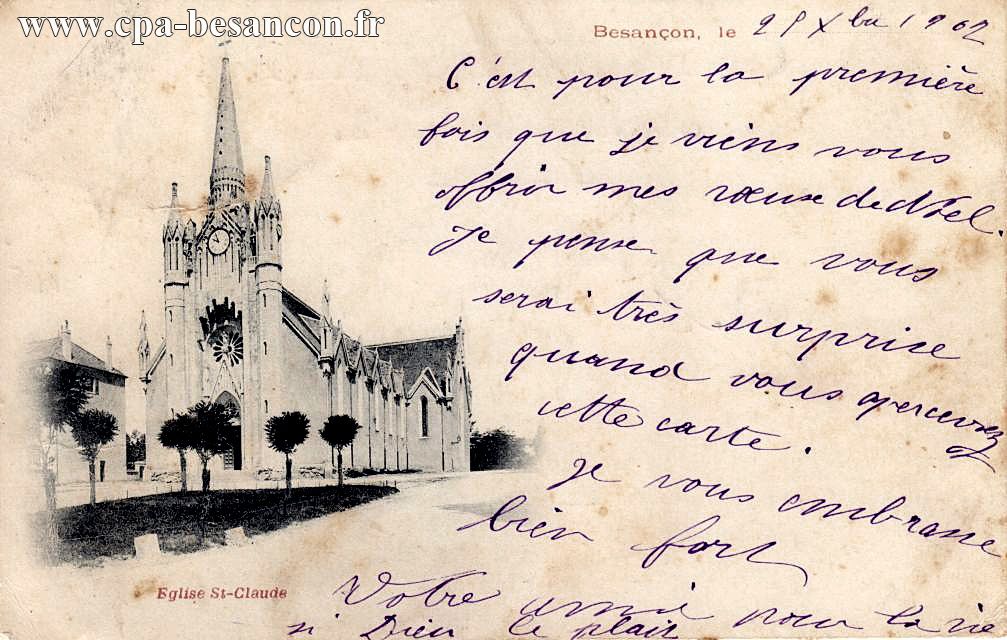 www.cpa-besancon.fr
Besançon, le 25 Xbre 1902
C'est pour la première
fois que je viens vous
offrir mes vœux de Noël.
Je pense que vous
serai très surprise
quand vous apercevrez
cette carte.
Je vous embrasse
bien fort
Votre amie pour la vie
si Dieu le plait
Eglise St-Claude